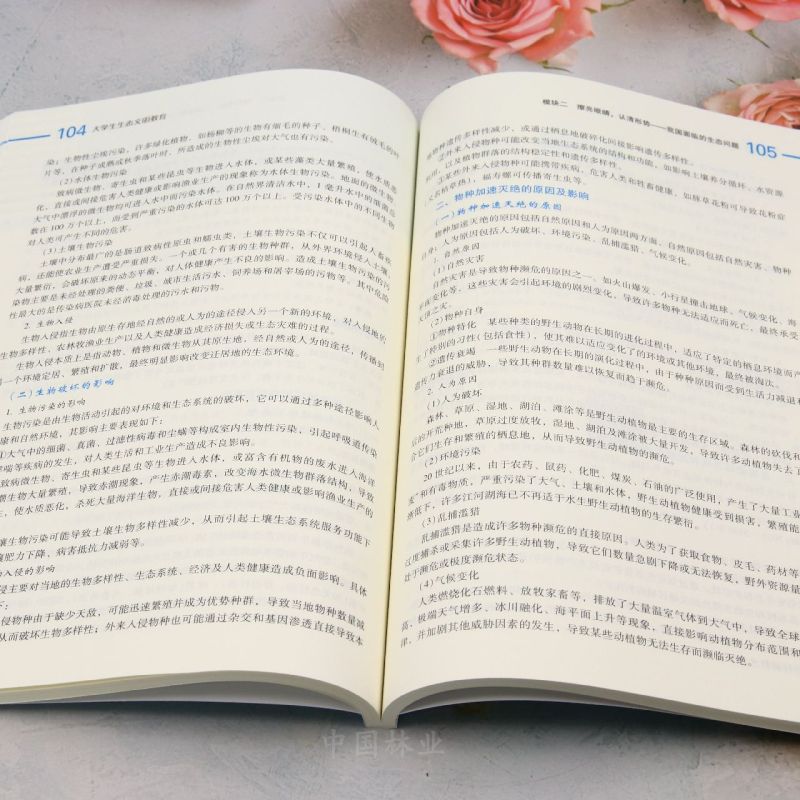 104 大学生生态文明教育
染；生物性尘埃污染，许多绿化植物，如杨柳等的生物有细毛的种子、梧桐生有绒毛的叶
片等，在种子成熟或秋季落叶时，所造成的生物性尘埃对大气也有污染。
(2)水体生物污染
致病微生物、寄生虫和某些昆虫等生物进入水体，或某些藻类大量繁殖，使水质恶
化，直接或间接危害人类健康或影响渔业生产的现象称为水体生物污染。地面的微生物
大气中漂浮的微生物均可进入水中而污染水体。在自然界清洁水中，1毫升水中的细菌总
数在100万个以上，而受到严重污染的水体可达100万个以上。受污染水体中的不同生物
对人类可产生不同的危害。
(3)土壤生物污染
土壤中分布最广的是肠道致病性原虫和蠕虫类，土壤生物污染不仅可以引起人畜疾
病，还能使农业生产遭受严重损失。一个或几个有害的生物种群，从外界环境侵入土壤，
大量繁衍，会破坏原来的动态平衡，对人体健康产生不良的影响。造成土壤生物污染的污
染物主要是未经处理的粪便、垃圾、城市生活污水、饲养场和屠宰场的污物等。其中危险
性最大的是传染病医院未经消毒处理的污水和污物。
2. 生物入侵
生物入侵指生物由原生存地经自然的或人为的途径侵入另一个新的环境，对入侵地的
生物多样性、农林牧渔业生产以及人类健康造成经济损失或生态灾难的过程。
生物入侵本质上是指动物、植物和微生物从其原生地，经自然或人为的途径，传播到
一个环境定居、繁殖和扩散，最终明显影响改变迁居地的生态环境。
(二)生物破坏的影响
1. 生物污染的影响
生物污染是由生物活动引起的对环境和生态系统的破坏，它可以通过多种途径影响人
康和自然环境，其影响主要表现如下：
①大气中的细菌、真菌、过滤性病毒和尘螨等构成室内生物性污染，引起呼吸道传染
喘等疾病的发生，对人类生活和工业生产造成不良影响。
致病微生物、寄生虫和某些昆虫等生物进入水体，或富含有机物的废水进入海洋
生物大量繁殖，导致赤潮现象，产生赤潮毒素，改变海水微生物群落结构，导致
，使水质恶化，杀死大量海洋生物，直接或间接危害人类健康或影响渔业的生产
壤生物污染可能导致土壤生物多样性减少，从而引起土壤生态系统服务功能下
壤肥力下降、病害抵抗力减弱等。
物入侵的影响
侵主要对当地的生物多样性、生态系统、经济及人类健康造成负面影响。具体
下：
侵物种由于缺少天敌，可能迅速繁殖并成为优势种群，导致当地物种数量减
从而破坏生物多样性；外来入侵物种也可能通过杂交和基因渗透直接导致本
模块二 擦亮眼睛，认清形势——我国面临的生态问题 105
物种遗传多样性减少，或通过栖息地破碎化间接影响遗传多样性。
②外来入侵物种可能改变当地生态系统的结构和功能，如影响土壤养分循环、水资源
利用，以及植物群落的结构稳定性和遗传多样性。
③某些外来入侵物种可能携带疾病，危害人类和牲畜健康，如豚草花粉可导致花粉症
，福寿螺可传播寄生虫等。
二、物种加速灭绝的原因及影响
(一)物种加速灭绝的原因
物种加速灭绝的原因包括自然原因和人为原因两方面，自然原因包括自然灾害、物种
自身；人为原因包括人为破坏、环境污染、乱捕滥猎、气候变化。
1. 自然原因
(1)自然灾害
自然灾害是导致物种濒危的原因之一。如火山爆发、小行星撞击地球、气候变化、海
平面变化等，这些灾害会引起环境的剧烈变化，导致许多物种无法适应而死亡，最终承受
灭顶之灾。
(2)物种自身
①物种特化 某些种类的野生动物在长期的进化过程中，适应了特定的栖息环境而产
生了特别的习性(包括食性)，使其难以适应变化了的环境或其他环境，最终被淘汰。
②遗传衰竭 一些野生动物在长期的演化过程中，由于种种原因而受到生活力减退和
遗传力衰退的威胁，导致其种群数量难以恢复而趋于濒危。
2. 人为原因
(1)人为破坏
森林、草原、湿地、湖泊、滩涂等是野生动物最主要的生存区域。森林的砍伐和
后的开荒种地，草原过度放牧，湿地、湖泊及滩涂被大量开发，导致许多动植物失去了
合它们生存和繁殖的栖息地，从而导致野生动植物的濒危。
(2)环境污染
20世纪以来，由于农药、鼠药、化肥、煤炭、石油的广泛使用，产生了大量工业
废”和有毒物质，严重污染了大气、土壤和水体，野生动植物健康受到损害，繁殖能
渐低下，许多江河湖海已不再适于水生野生动植物的生存繁衍。
(3)乱捕滥猎
乱捕滥猎是造成许多物种濒危的直接原因。人类为了获取食物、皮毛、药材等
过度捕杀或采集许多野生动植物，导致它们数量急剧下降或无法恢复，野外资源量
处于濒危或极度濒危状态。
(4)气候变化
人类燃烧化石燃料、放牧家畜等，排放了大量温室气体到大气中，导致全球
高，极端天气增多、冰川融化、海平面上升等现象，直接影响动植物分布范围和
律，并加剧其他威胁因素的发生，导致某些动植物无法生存而濒临灭绝。
中国林业